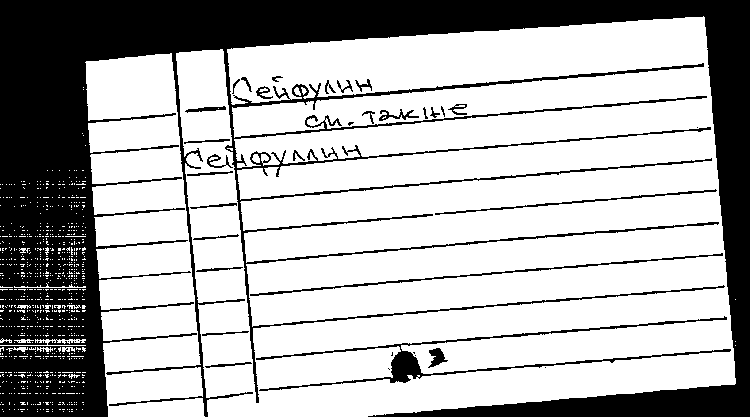 Сейфулин
см. также
Сейфуллин